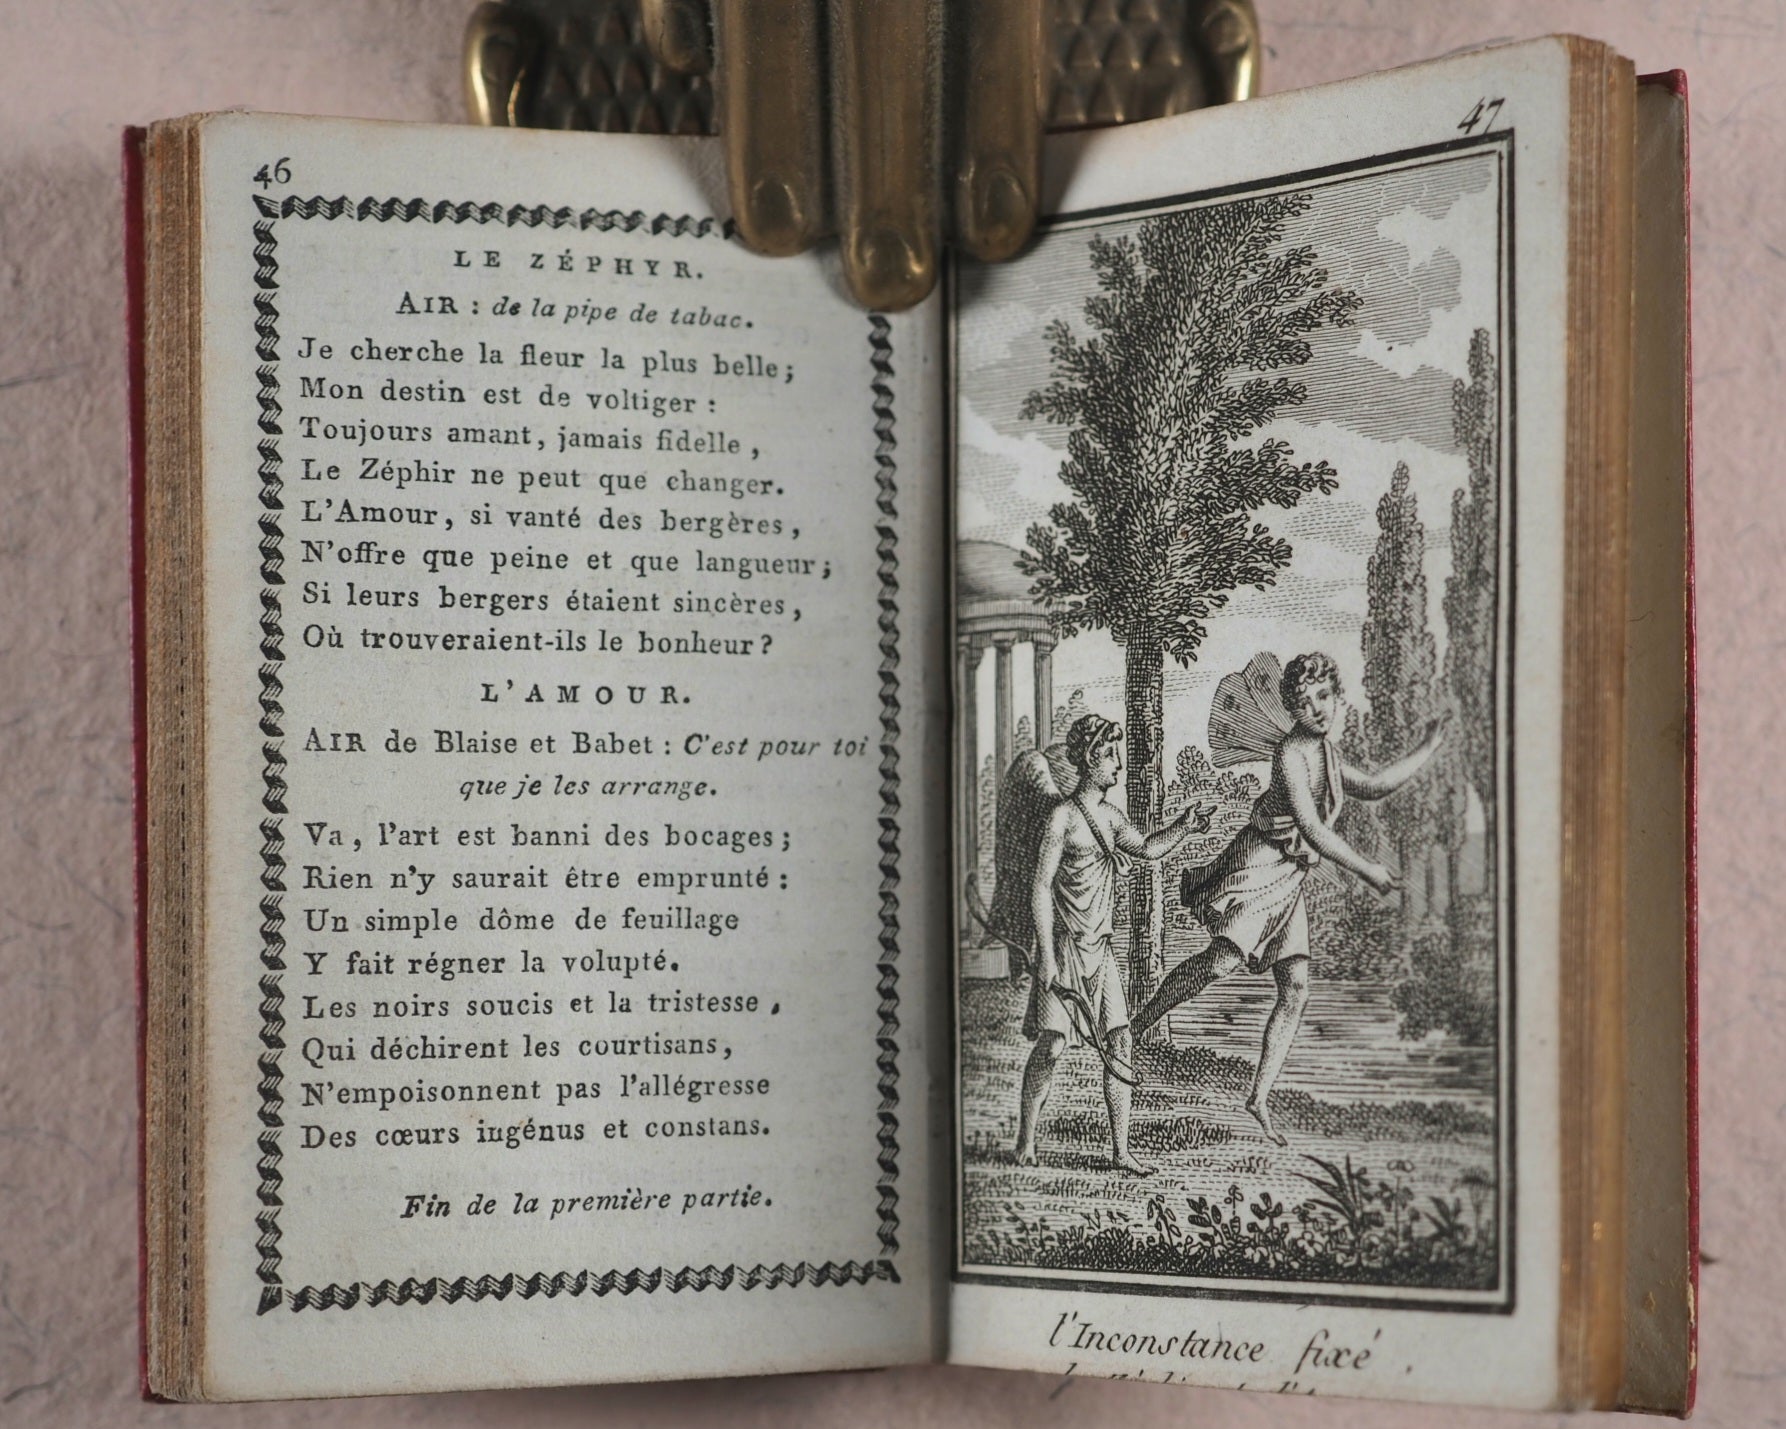 46
LE ZÉPHYR.
AIR : de la pipe de tabac.
Je cherche la fleur la plus belle ;
Mon destin est de voltiger :
Toujours amant, jamais fidelle ,
Le Zéphir ne peut que changer.
L'Amour, si vanté des bergères ,
N'offre que peine et que langueur ;
Si leurs bergers étaient sincères ,
Où trouveraient-ils le bonheur ?
L'AMOUR.
AIR de Blaise et Babet : C'est pour toi
que je les arrange.
Va, l'art est banni des bocages ;
Rien n'y saurait être emprunté :
Un simple dôme de feuillage
Y fait régner la volupté.
Les noirs soucis et la tristesse ,
Qui déchirent les courtisans,
N'empoisonnent pas l'allégresse
Des cœurs ingénus et constans.
Fin de la première partie.
47
l'Inconstance fixé .